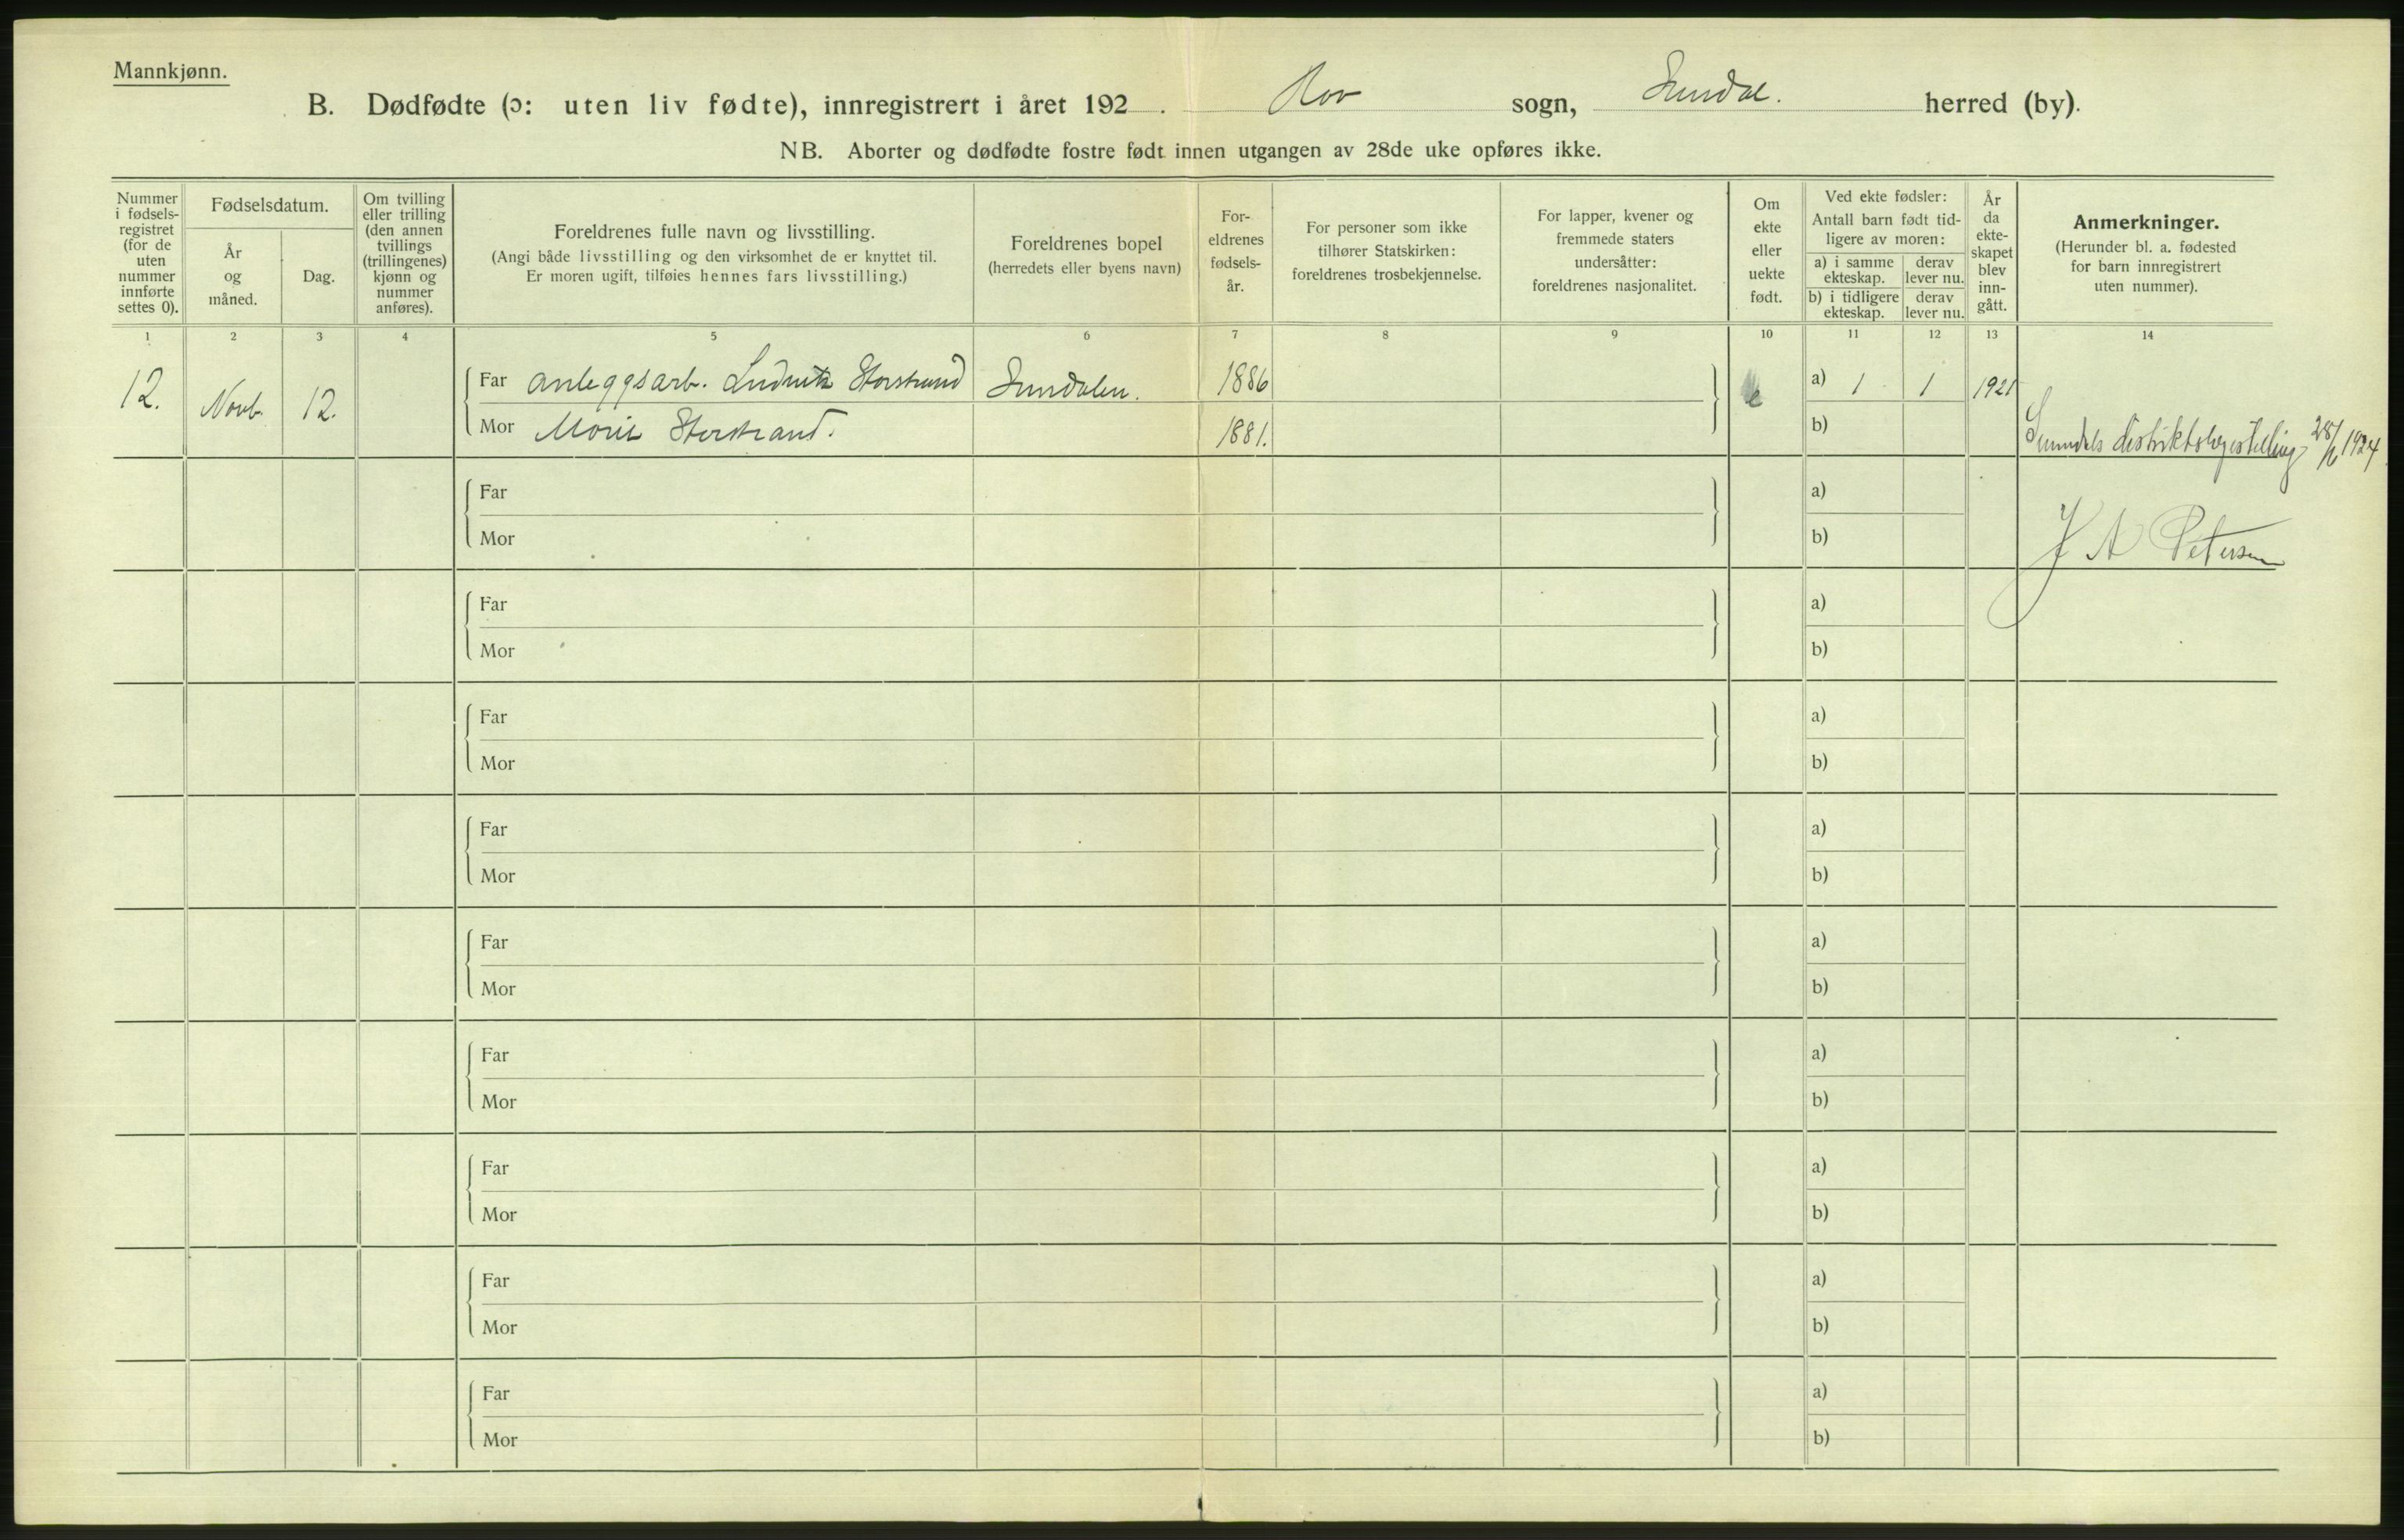 Mannkjønn.
B. Dødfødte (ɔ: uten liv fødte), innregistrert i året 192 . Hov sogn, Sundal. herred (by).
NB. Aborter og dødfødte fostre født innen utgangen av 28de uke opføres ikke.
Nummer
i fødsels-
registret
(for de
uten
nummer
innførte
settes 0).
Fødselsdatum.
År
og
måned.
Dag.
Om tvilling
eller trilling
(den annen
tvillings
(trillingenes)
kjønn og
nummer
anføres).
Foreldrenes fulle navn og livsstilling.
(Angi både livsstilling og den virksomhet de er knyttet til.
Er moren ugift, tilføies hennes fars livsstilling.)
Foreldrenes bopel
(herredets eller byens navn)
For-
eldrenes
fødsels-
år.
For personer som ikke
tilhører Statskirken:
foreldrenes trosbekjennelse.
For lapper, kvener og
fremmede staters
undersåtter:
foreldrenes nasjonalitet.
Om
ekte
eller
uekte
født.
Ved ekte fødsler:
Antall barn født tid-
ligere av moren:
a) i samme
ekteskap.
derav
lever nu.
b) i tidligere
ekteskap.
derav
lever nu.
År
da
ekte-
skapet
blev
inn-
gått.
Anmerkninger.
(Herunder bl. a. fødested
for barn innregistrert
uten nummer).
1 2 3 4 5 6 7 8 9 10 11 12 13 14
12. Novb. 12. Far anleggsarb. Ludvik Storstrand Sundalen. 1886 e a) 1 1 1921
Mor Marie Storstrand. 1881. b)
Sunndals distriktslegestilling 28/ 1924
Far a)
Mor b)
J A Petersen
Far a)
Mor b)
Far a)
Mor b)
Far a)
Mor b)
Far a)
Mor b)
Far a)
Mor b)
Far a)
Mor b)
Far a)
Mor b)
Far a)
Mor b)